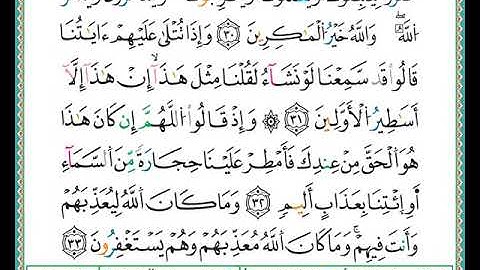 ٱللَّهُۖ وَٱللَّهُ خَيۡرُ ٱلۡمَٰكِرِينَ ٣٠ وَإِذَا تُتۡلَىٰ عَلَيۡهِمۡ ءَايَٰتُنَا
قَالُواْ قَدۡ سَمِعۡنَا لَوۡ نَشَآءُ لَقُلۡنَا مِثۡلَ هَٰذَآ إِنۡ هَٰذَآ إِلَّآ
أَسَٰطِيرُ ٱلۡأَوَّلِينَ ٣١ ۞ وَإِذۡ قَالُواْ ٱللَّهُمَّ إِن كَانَ هَٰذَا
هُوَ ٱلۡحَقَّ مِنۡ عِندِكَ فَأَمۡطِرۡ عَلَيۡنَا حِجَارَةٗ مِّنَ ٱلسَّمَآءِ
أَوِ ٱئۡتِنَا بِعَذَابٍ أَلِيمٖ ٣٢ وَمَا كَانَ ٱللَّهُ لِيُعَذِّبَهُمۡ
وَأَنتَ فِيهِمۡۚ وَمَا كَانَ ٱللَّهُ مُعَذِّبَهُمۡ وَهُمۡ يَسۡتَغۡفِرُونَ ٣٣